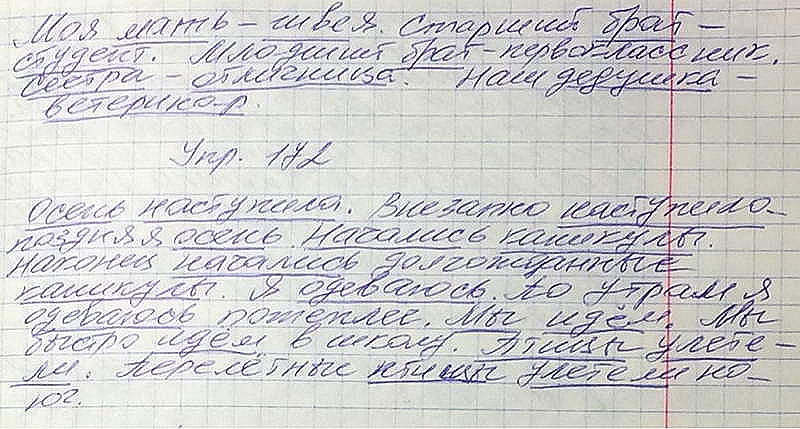 Моя мать - швея. Старший брат -
студент. Младший брат - первоклассник.
Сестра - отличница. Наш дедушка -
ветеринар.
Упр. 172
Осень наступила. Внезапно наступила
поздняя осень. Начались каникулы.
Наконец начались долгожданные
каникулы. Я одеваюсь. По утрам я
одеваюсь потеплее. Мы идём. Мы
быстро идём в школу. Птицы улете-
ли. Перелётные птицы улетели на
юг.